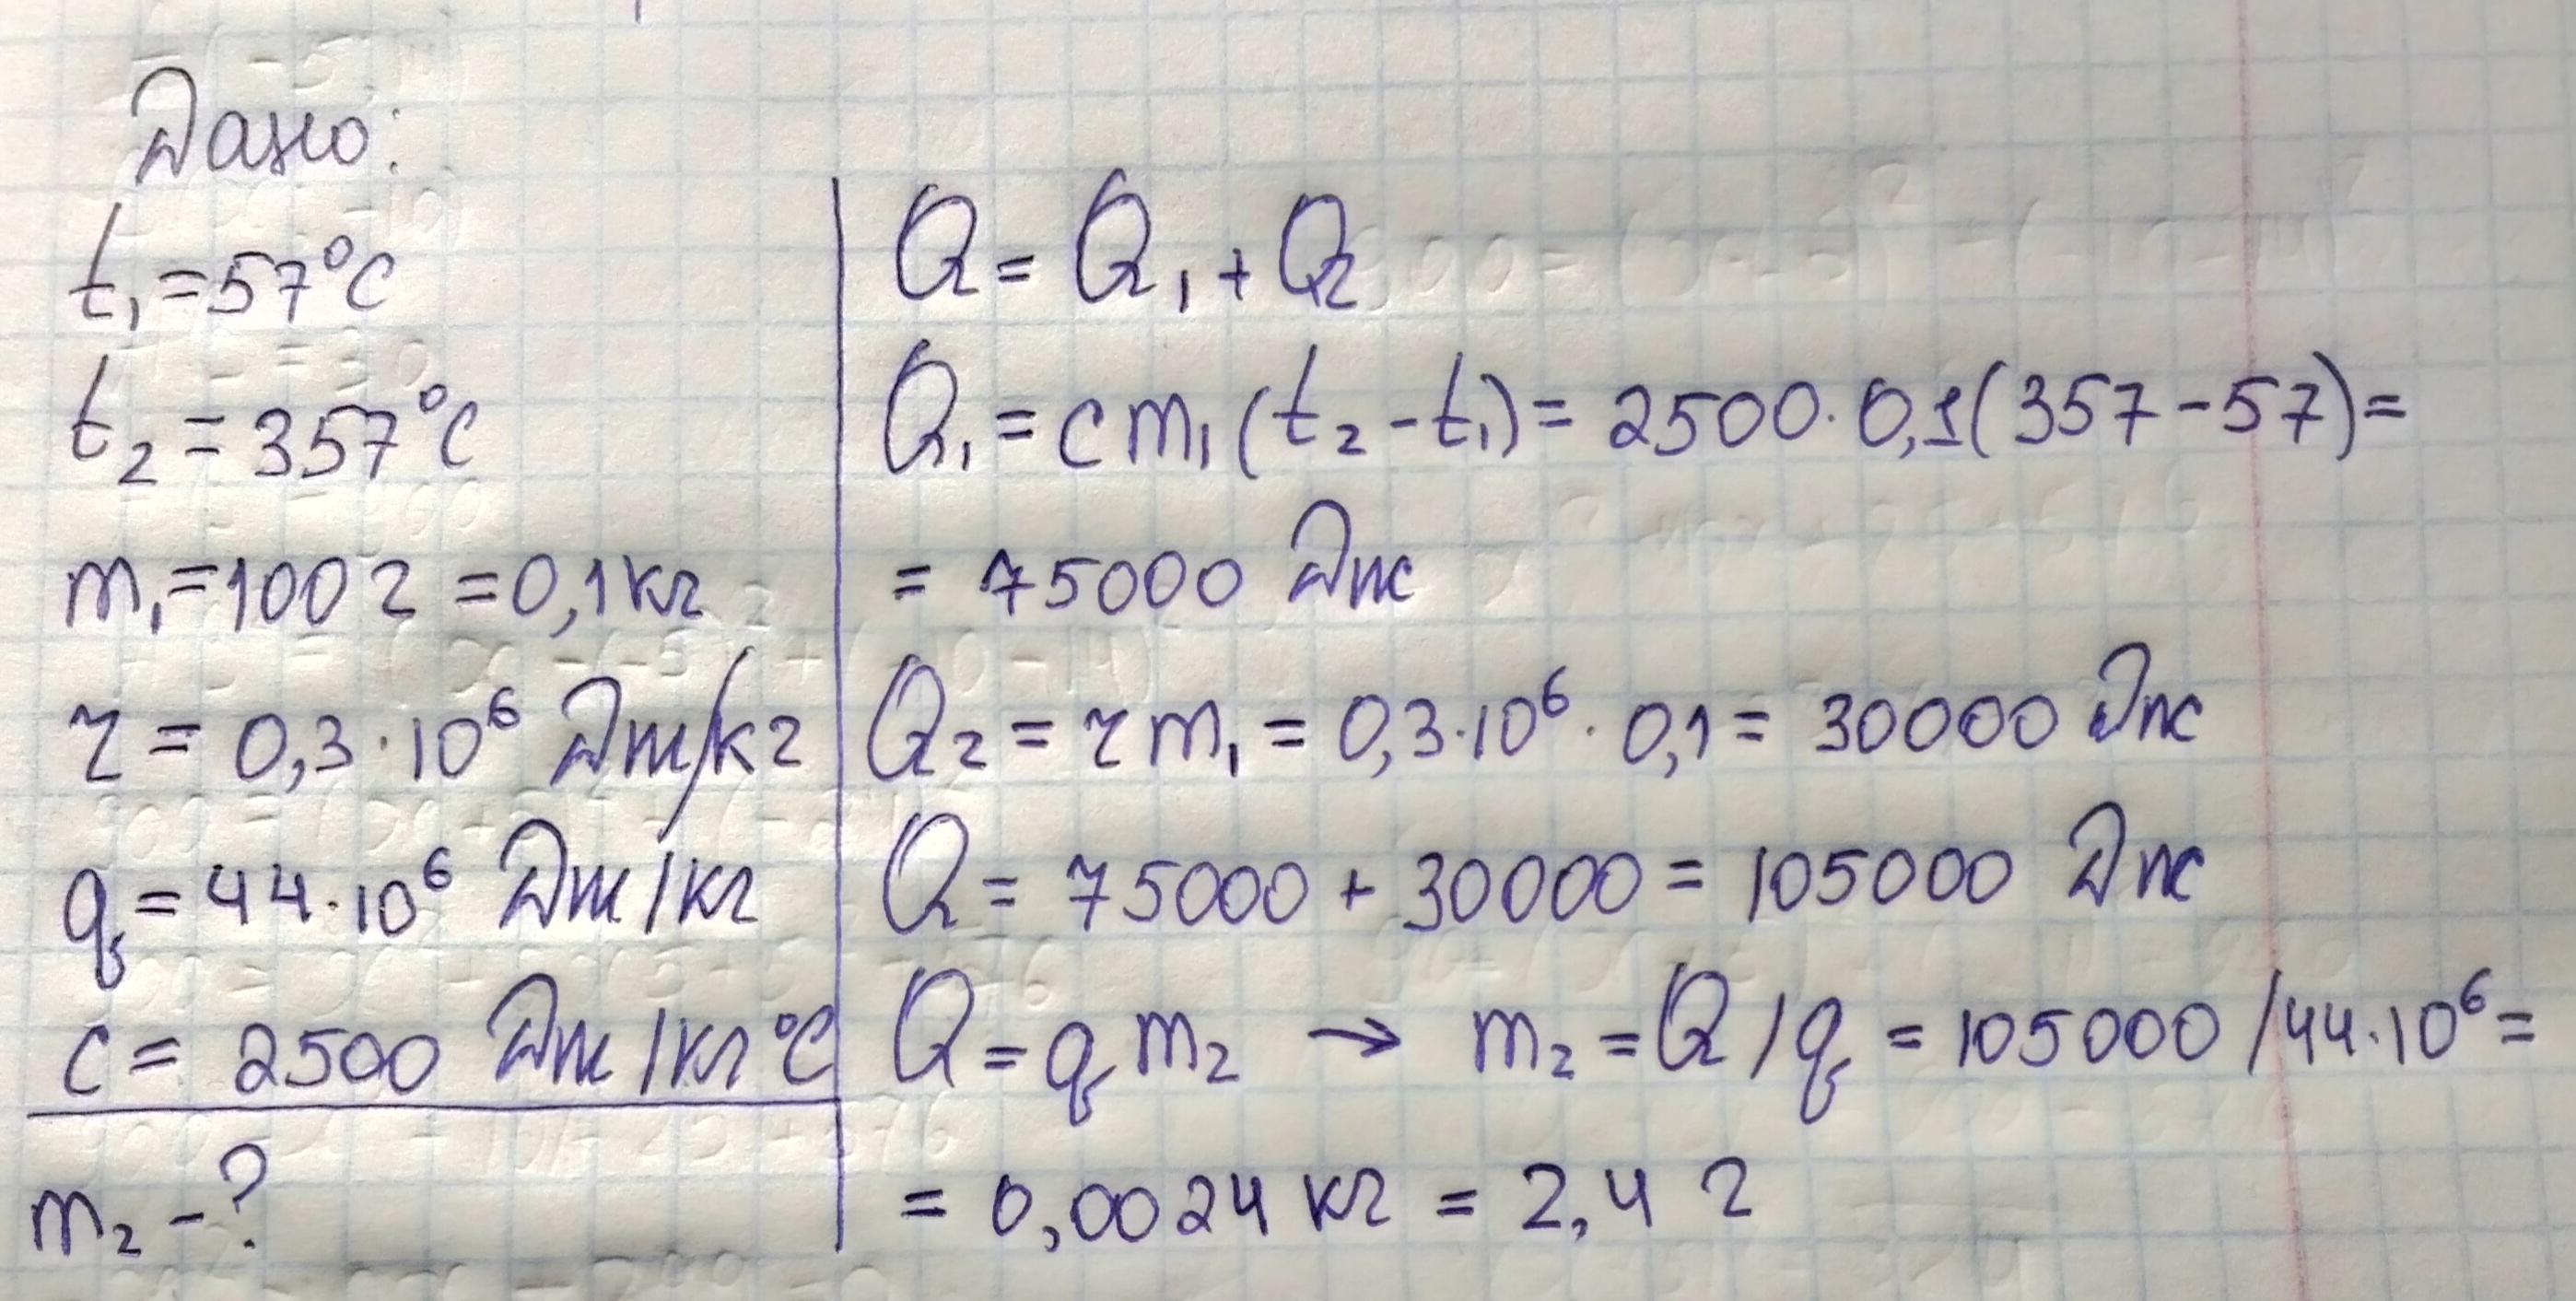 Дано:
t₁=57°C
t₂=357°C
m₁=100 г =0,1 кг
r = 0,3·10⁶ Дж/кг
q=44·10⁶ Дж/кг
c= 2500 Дж/кг°C
m₂ -?
Q= Q₁+Q₂
Q₁= cm₁(t₂-t₁)= 2500·0,1(357-57)=
= 75000 Дж
Q₂ = rm₁ = 0,3·10⁶·0,1= 30000 Дж
Q= 75000+30000= 105000 Дж
Q=qm₂ → m₂=Q/q=105000/44·10⁶=
= 0,0024 кг = 2,4 г